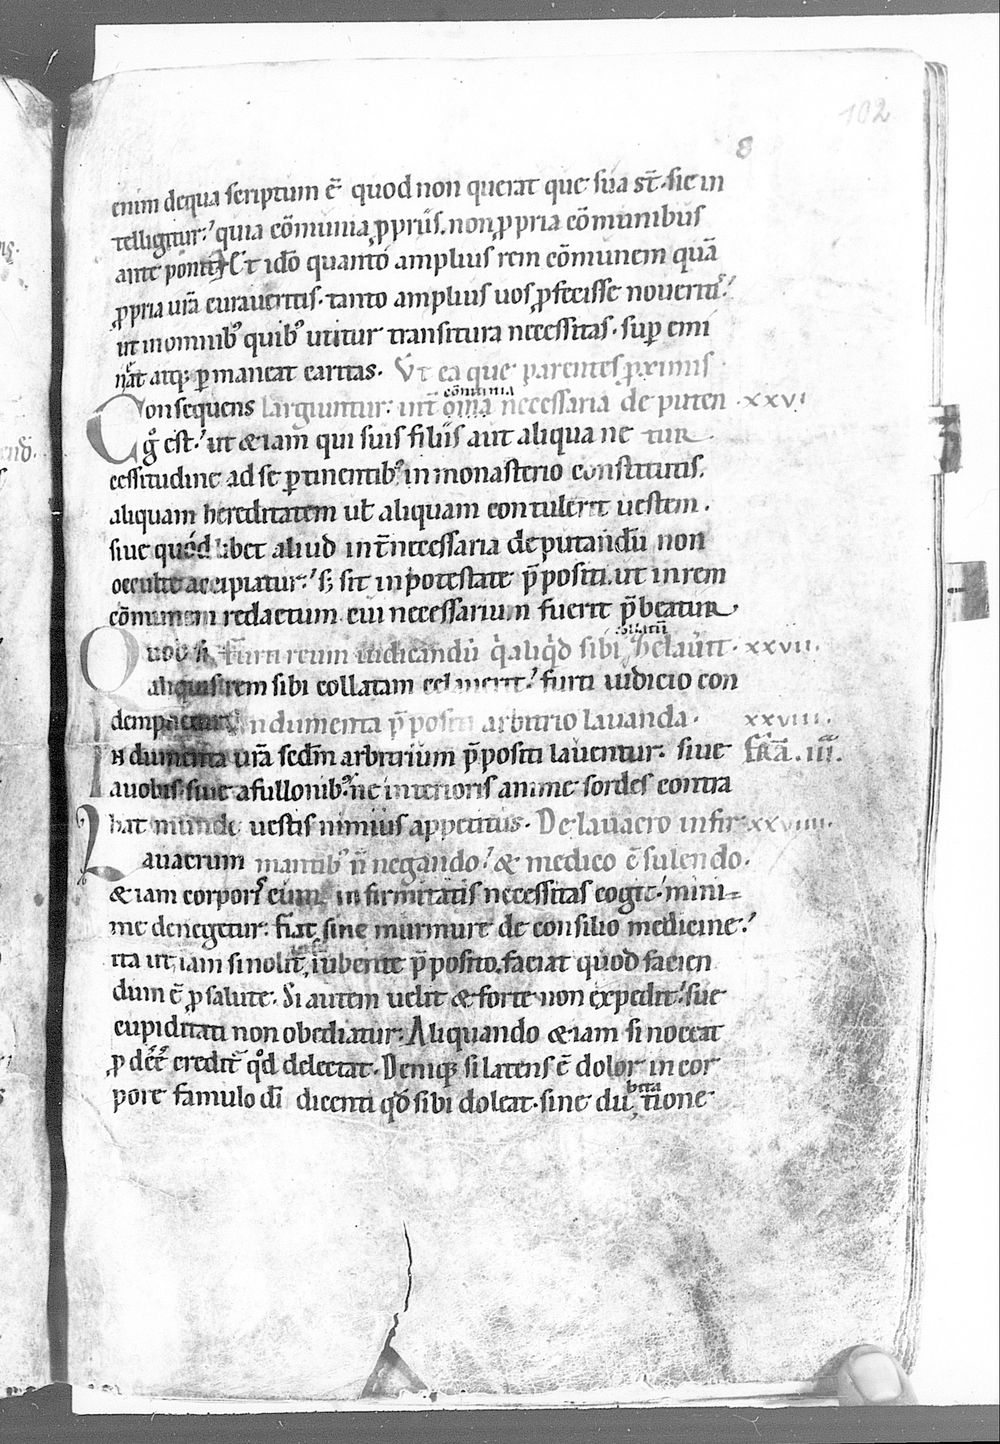 102
8
enim dequa scriptum ē quod non querat que sua st̄. sic in
telligitur; quia cōmunia ꝓpriis. non ꝓpria cōmunibus
ante ponit Et idō quanto amplius rem cōmunem quā
ꝓpria urā curaueritis. tanto amplius uos ꝓfecisse noueritis;
ut inomnib; quib; utitur transitura necessitas. sup emi
neat atq; ꝑmaneat caritas. Vt ea que parentes ꝓximis
Consequens largiuntur: int̄ om̄ia cōmunia necessaria de puten xxvi
ḡ est; ut &iam qui suis filiis aut aliqua ne tur
cessitudine ad se ꝑtinentib; in monasterio constitutis.
aliquam hereditatem ul̄ aliquam contulerit uestem.
siue quod libet aliud int̄ necessaria deputandū non
occulte accipiatur; s; sit inpotestate p̄positi. ut inrem
cōmunem redactum cui necessarium fuerit p̄beatur.
Quod si furti reum iudicandū q̄ aliq̄d sibi collatū celauit. xxvii.
aliquis rem sibi collatam celauerit; furti iudicio con
dempnetur Indumenta p̄positi arbitrio lauanda. xxviii.
Indumenta urā secdm arbitrium p̄positi lauentur. siue fr̄iā. iii.
auobis. siue afullonib; ne interioris anime sordes contra
hat munde uestis nimius appetitus. De lauacro infir xxviiii.
Lauacrum mantib; n̄ negando; & medico cōsulendo.
&iam corporis cum infirmitatis necessitas cogit; mini=
me denegetur: fiat sine murmure de consilio medicine;
ita ut, iam si nolit, iubente p̄posito. faciat quod facien
dum ē ꝓ salute. Si autem uelit & forte non expedit; sue
cupiditati non obediatur: Aliquando &iam si noceat
ꝓdēē creditꝰ qd̄ delectat. Deniq; si latens ē dolor in cor
pore famulo dī dicenti qd̄ sibi doleat. sine dubitatione